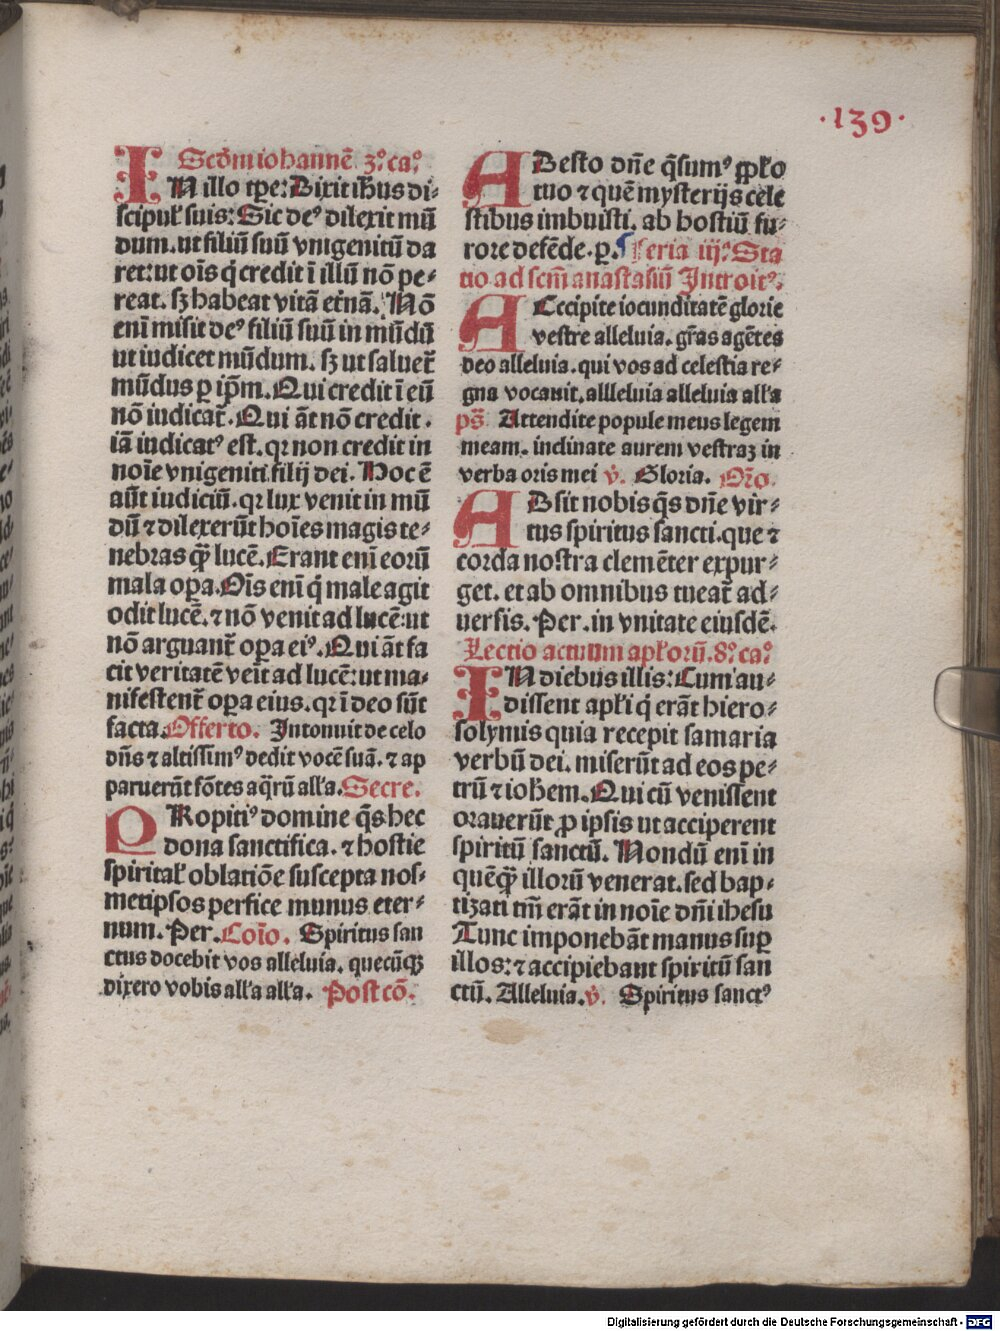 ·139·
Scd̄m iohannē 3ꝰ caꝰ
IN illo tp̄e: Dixit ih̄us di⸗
scipuł suis: Sic deꝰ dilexit mū
dum. ut filiū suū vnigenitū da
ret: ut oīs q̇ credit ī illū nō pe⸗
reat. sꝫ habeat vitā et̄nā. Nō
enī misit deꝰ filiū suū in mūdū
ut iudicet mūdum. sꝫ ut saluet̄
mūdus ꝑ ip̄m. Qui credit ī eū
nō iudicat̄. Qui āt nō credit.
iā iudicatꝰ est. qꝛ non credit in
noīe vnigeniti filij dei. Hoc ē
aūt iudiciū. qꝛ lux venit in mū
dū ⁊ dilexerūt hoīes magis te⸗
nebras q̄ꝫ lucē. Erant enī eorū
mala oꝑa. Oīs enī q̇ male agit
odit lucē. ⁊ nō venit ad lucē: ut
nō arguant̄ oꝑa eiꝰ. Qui āt fa
cit veritatē veīt ad lucē: ut ma⸗
nifestent̄ oꝑa eius. qꝛ ī deo sūt
facta. Offerto. Intonuit de celo
dn̄s ⁊ altissimꝰ dedit vocē suā. ⁊ ap
paruerūt fōtes aq̄rū alła. Secre.
PRopitiꝰ domine q̄s hec
dona sanctifica. ⁊ hostie
spiritał oblatiōe suscepta nos⸗
metipsos perfice munus eter⸗
num. Per. Coīo. Spiritus san
ctus docebit vos alleluia. quecūqꝫ
dixero vobis alła alła. Postcō.
ADesto dn̄e q̄sumꝰ ꝓpło
tuo ⁊ quē mysterijs cele
stibus imbuisti. ab hostiū fu⸗
rore defēde. ꝑ. Feria iijꝰ Sta
tio ad scm̄ anastasiū Introitꝰ.
ACcipite iocunditatē glorie
vestre alleluia. gr̄as agētes
deo alleluia. qui vos ad celestia re⸗
gna vocauit. allleluia alleluia alła
ps̄ Attendite popule meus legem
meam. inclinate aurem vestraꝫ in
verba oris mei v̇. Gloria. Or̄o.
ADsit nobis q̄s dn̄e vir⸗
tus spiritus sancti. que ⁊
corda nostra clemēter expur⸗
get. et ab omnibus tueat̄ ad⸗
uersis. Per. in vnitate eiusdē.
Lectio actuum apłorū. 8ꝰ caꝰ
IN diebus illis: Cum au⸗
dissent apłi q̇ erāt hiero⸗
solymis quia recepit samaria
verbū dei. miserūt ad eos pe⸗
trū ⁊ ioh̄em. Qui cū venissent
orauerūt ꝓ ipsis ut acciperent
spiritū sanctū. Nondū enī in
quēq̄ꝫ illorū venerat. sed bap⸗
tizati tm̄ erāt in noīe dn̄i ihesu
Tunc imponebāt manus suꝑ
illos: ⁊ accipiebant spiritū san
ctū. Alleluia. v̇. Spiritus sanctꝰ
Digitalisierung gefördert durch die Deutsche Forschungsgemeinschaft - DFG